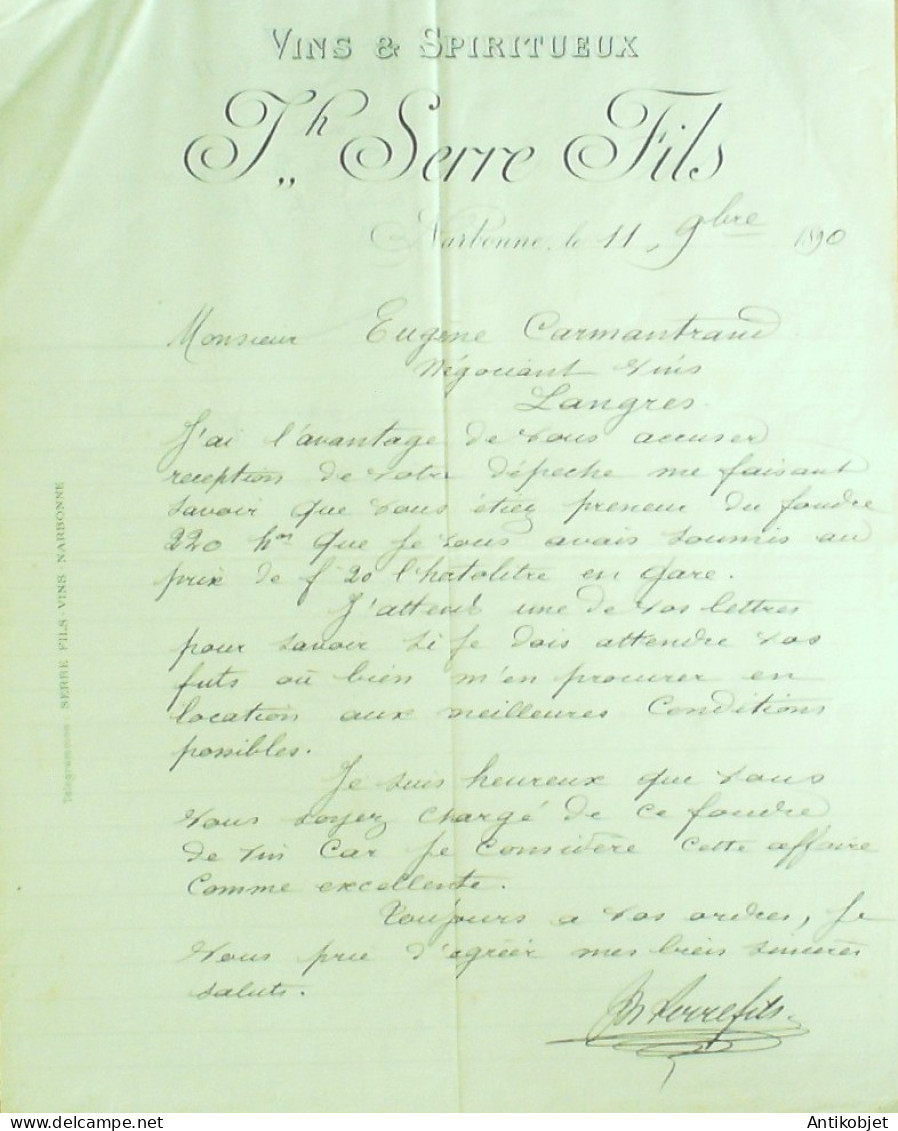 VINS & SPIRITUEUX
J.h Serre Fils
Narbonne, le 11, 9bre 1890
Monsieur Eugène Carmantrand
Négociant Vins
Langres.
J'ai l'avantage de vous accuser
reception de votre dépeche me faisant
savoir que vous étiez preneur du foudre
220 hos que je vous avais soumis au
prix de f 20 l'hectolitre en gare.
J'attend une de vos lettres
pour savoir si je dois attendre vos
futs où bien m'en procurer en
location aux meilleures conditions
possibles.
Je suis heureux que vous
vous soyez chargé de ce foudre
de vin car je considère cette affaire
comme excellente.
Toujours a vos ordres, je
vous prie d'agréer mes bien sincères
saluts.
Jh Serre fils
Télégrammes: SERRE FILS-VINS-NARBONNE
Antikobjet